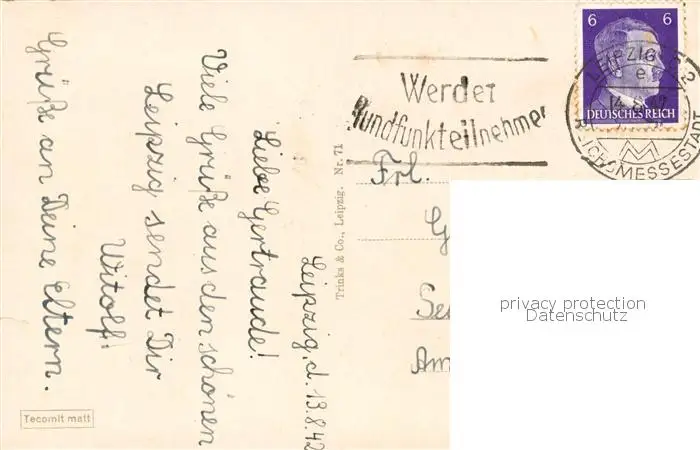 Leipzig, d. 13.8.42
Liebe Gertraude!
Viele Grüße aus den schönen
Leipzig sendet Dir
Witolf.
Grüße an Deine Eltern.
Tecomit matt
Trinks & Co., Leipzig. Nr. 71
Werdet
Rundfunkteilnehmer
6 6
DEUTSCHES REICH
LEIPZIG
e
14.8.42
REICHSMESSESTADT
M
Frl.
Am
privacy protection
Datenschutz